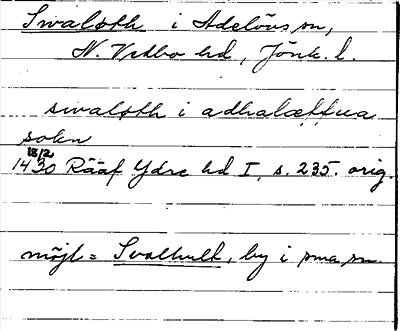 Swaløth i Adelövs sn,
N. Vedbo hd, Jönk. l.
swaløth i adhalættua
sokn
18/2
1430 Rääf Ydre hd I, s. 235. orig.
möjl = Svalhult, by i sma sn